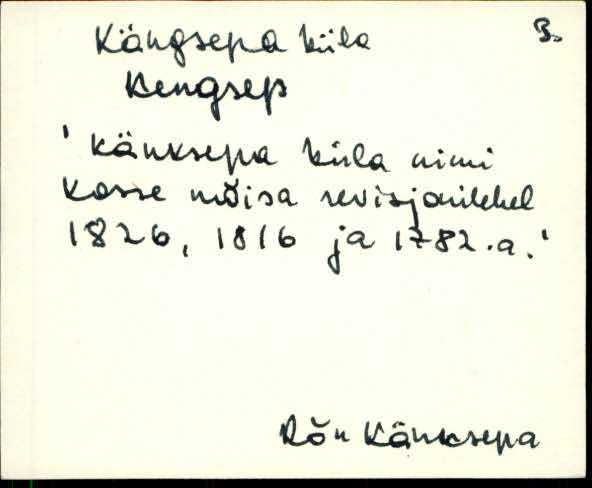 Kängsepa küla
B.
Kengsep
'Känksepa küla nimi
Kasse mõisa revisjonilehel
1826, 1816 ja 1782.a.'
Rõn Känksepa